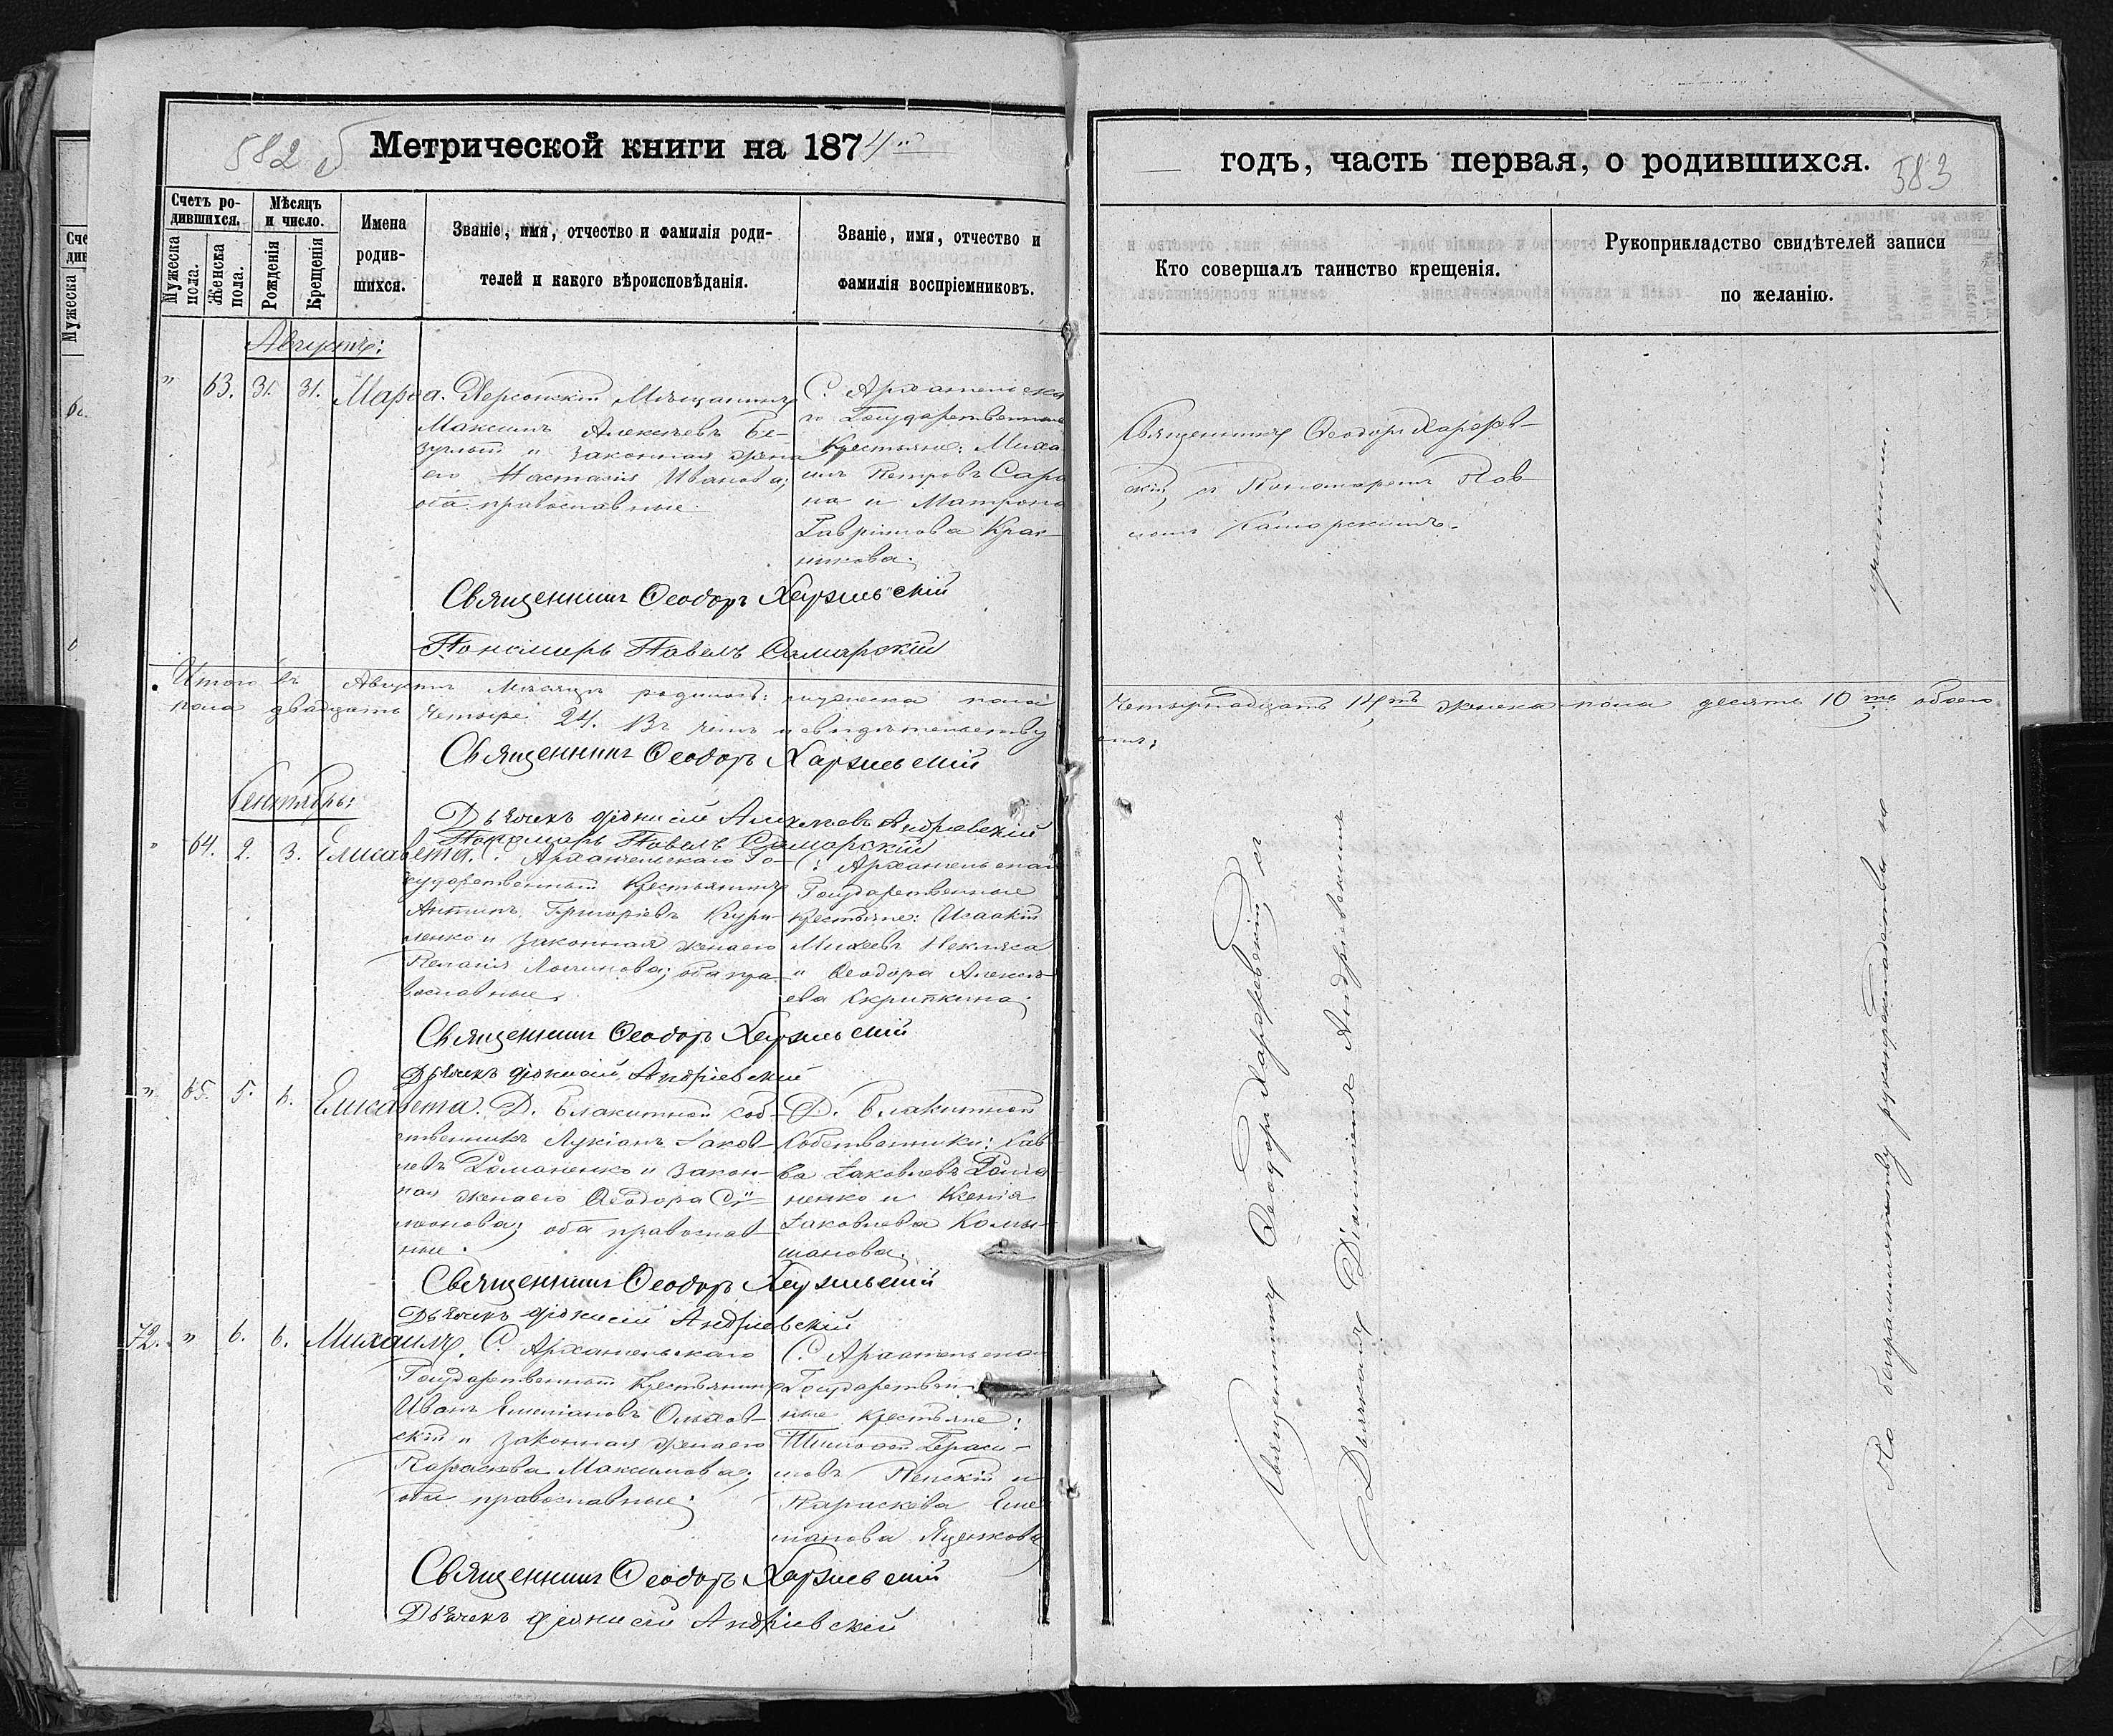 582 б
Метрической книги на 1874й
Счетъ ро-
дившихся.
Мѣсяцъ
и число.
Мужеска
пола.
Женска
пола.
Рожденія
Крещенія
Имена
родив-
шихся.
Званіе, имя, отчество и фамилія роди-
телей и какого вѣроисповѣданія.
Званіе, имя, отчество и
фамилія воспріемниковъ.
Августъ:
" 63. 31. 31. Марѳа.
Херсонскій Мѣщанинъ
Максимъ Алексѣевъ Бе-
зуглый и законная жена
его Настасія Иванова;
оба православные.
С. Архангельска
го Государственные
Крестьяне: Миха
илъ Петровъ Сара
на и Матрона
Гаврилова Крас-
никова.
Священникъ Ѳеодоръ
Пономарь Павелъ Самарскій
Итого въ Августѣ Мѣсяцѣ родилось: мужеска пола
пола двадцать четыре 24. Въ чемъ и свидѣтельству
Священникъ Ѳеодоръ
Сентябрь:
Дьячекъ Діонисій Алексѣевъ Андріевскій
Пономарь Павелъ Самарскій
" 64. 2. 3. Елисавета.
С. Архангельскаго Го-
сударственный Крестьянинъ
Антипъ Григоріевъ Кури-
ленко и законная жена его
Пелагія Логинова; оба пра-
вославные.
С. Архангельскаго
Государственные
Крестьяне: Исаакій
Михеевъ Некляса
и Ѳеодора Алексѣ-
ева Скрипкина;
Священникъ Ѳеодоръ
Дьячекъ Діонисій Андріевскій
" 65. 5. 6. Елисавета.
Д. Блакитной соб-
ственникъ Лукіанъ Іаков-
левъ Романенко и закон-
ная жена его Ѳеодора Си-
меонова; оба православ-
ные.
Д. Блакитной
Собственники: Сав-
ва Іаковлевъ Рома
ненко и Ксенія
Іаковлева Комы-
шанова.
Священникъ Ѳеодоръ
Дьячекъ Діонисій Андріевскій
72. " 6. 6. Михаилъ.
С. Архангельскаго
Государственный Крестьянинъ
Иванъ Емеліановъ Ольхов-
скій и законная жена его
Параскева Максимова;
оба православные;
С. Архангельскаго
Государствен-
ные крестьяне:
Тимоѳей Гераси-
мовъ и
Параскева Еме
ліанова Яценкова
Священникъ Ѳеодоръ
Дьячекъ Діонисій Андріевскій
годъ, часть первая, о родившихся.
583
Кто совершалъ таинство крещенія.
Рукоприкладство свидѣтелей записи
по желанію.
Священникъ Ѳеодоръ
скій, съ Пономаремъ Пав-
ломъ Самарскимъ.
Четырнадцать 14ть женска пола десять 10ть обоего
емъ;
Священникъ Ѳеодоръ съ
Дьячкомъ Діонисіемъ Андріевскимъ
По безграмотству рукоприкладства не
учинили.